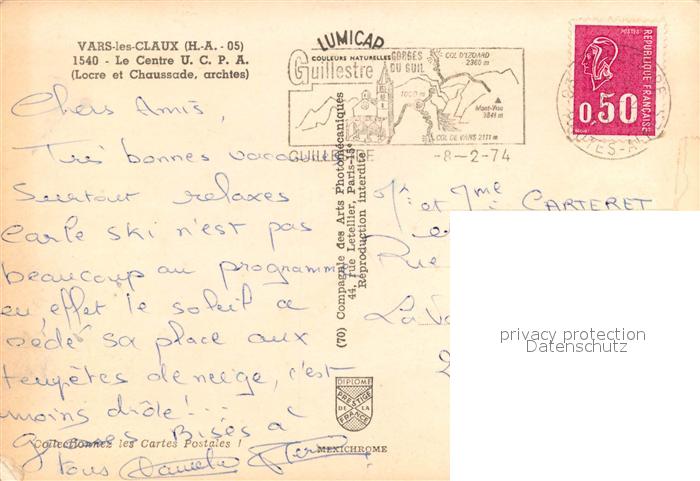 VARS-les-CLAUX (H.-A. - 05)
1540 - Le Centre U. C. P. A.
(Locre et Chaussade, archtes)
LUMICAP
COULEURS NATURELLES
Guillestre
GORGES
DU GUIL
COL D'IZOARD
2360 m
1000 m
Mont-Viso
3841 m
COL DE VARS 2111 m
GUILLESTRE
-8-2-74
POSTES
REPUBLIQUE FRANÇAISE
0,50
HAUTES-ALPES
Chers Amis,
Très bonnes vacances
Surtout relaxes
Car le ski n'est pas
beaucoup au programme
en effet le soleil a
cédé sa place aux
tempêtes de neige, c'est
moins drôle!...
Grosses Bises à
tous
Collectionnez les Cartes Postales !
(70) Compagnie des Arts Photomécaniques
44, rue Letellier, Paris-15e
Reproduction interdite
DIPLOME
PRESTIGE
DE LA
FRANCE
MEXICHROME
Mr et Mme CARTERET
Rue
La Va
privacy protection
Datenschutz